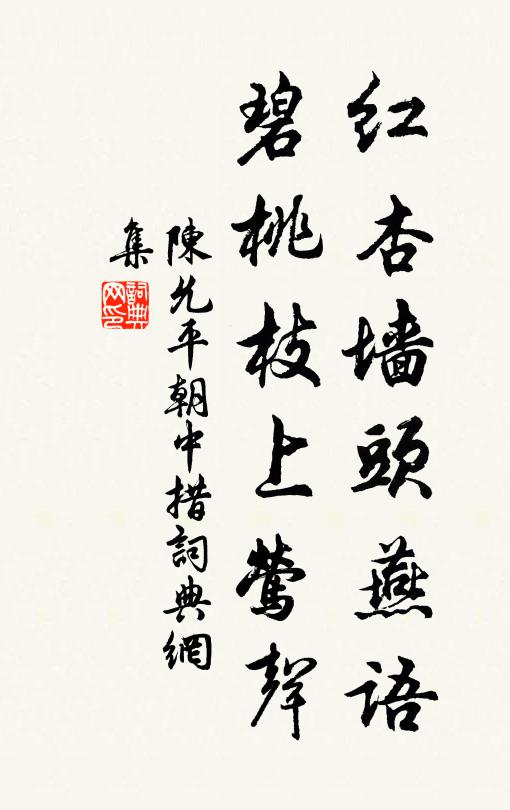 红杏墙頭燕語
碧桃枝上莺聲
陳允平朝中措詞典網
集
詞典網印